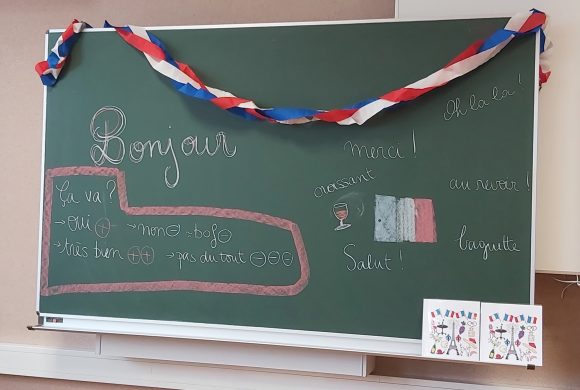 Bonjour
Ça va ?
→ oui +
→ non - → bof -
→ très bien ++
→ pas du tout ---
Oh la la !
merci !
croissant
au revoir !
baguette
Salut !